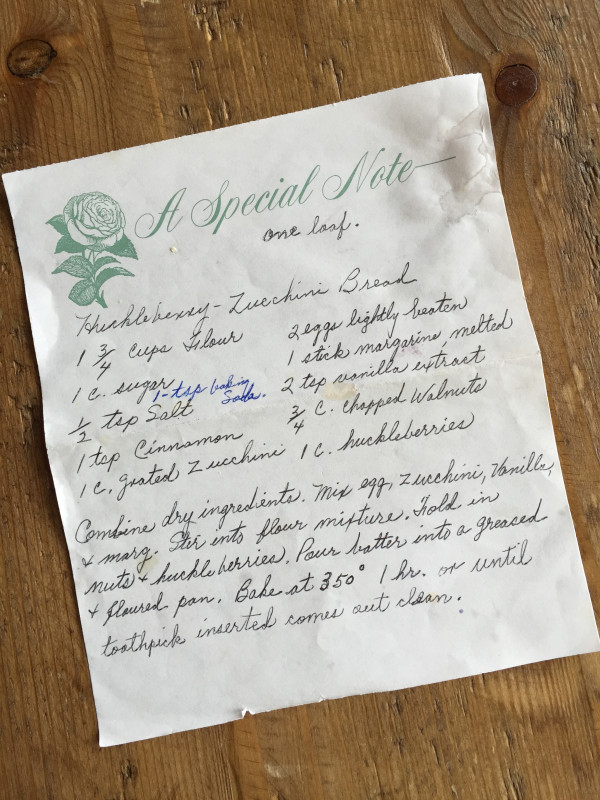 A Special Note
one loaf.
Huckleberry-Zucchini Bread
1 3/4 cups Flour
1 c. sugar
1-tsp baking
Soda.
1/2 tsp Salt
1 tsp Cinnamon
1 c. grated Zucchini
2 eggs lightly beaten
1 stick margarine, melted
2 tsp vanilla extract
3/4 c. chopped Walnuts
1 c. huckleberries
Combine dry ingredients. Mix egg, Zucchini, Vanilla,
+ marg. Stir into flour mixture. Fold in
nuts + huckleberries. Pour batter into a greased
+ floured pan. Bake at 350° 1 hr. or until
toothpick inserted comes out clean.